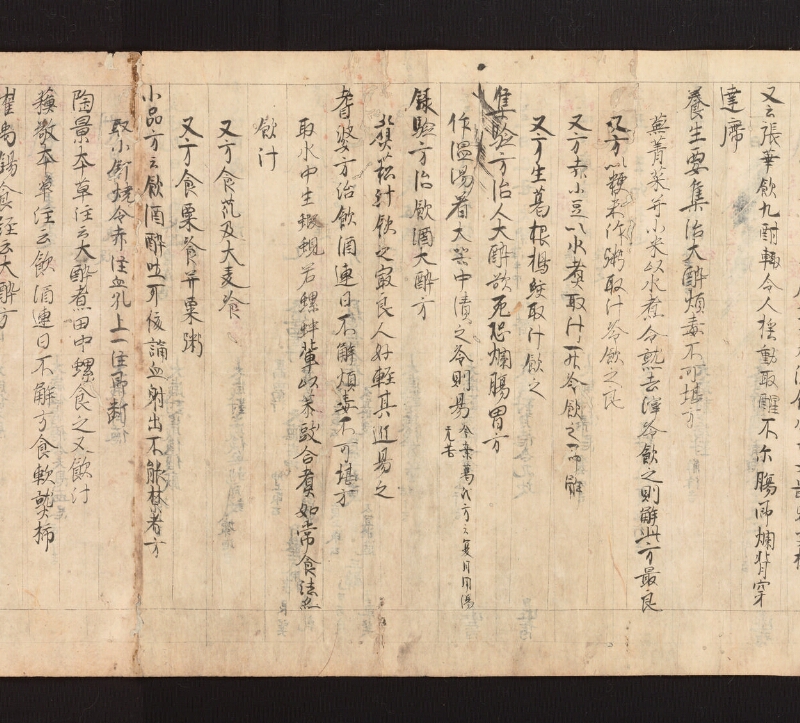 又云張華飲九醞輙令人揺動取醒不尓腸即爛背穿
達席
養生要集治大醉煩毒不可堪方
蕪菁菜并小米以水煮令熟去滓冷飲之則解此方最良
又方以粳米作粥取汁冷飲之良
又方赤小豆以水煮取汁一升冷飲之一即解
又方生葛根搗絞取汁飲之
集驗方治人大醉欲死恐爛腸胃方
作温湯着大器中漬之冷則易 今案葛氏方云夏月用湯
无苦
録驗方治飲酒大醉方
菘汁飲之最良人好輕其近易之
耆婆方治飲酒連日不解煩毒不可堪方
取水中生螺蜆若螺蚌輩以葱豉合煮如常食法
飲汁
又方食苽及大麦飡
又方食粟飡并粟粥
小品方云飲酒醉吐牙後血射出不能禁者方
取小釘焼令赤注血孔上一注即
陶景本草注云大醉煮田中螺食之又飲汁
蘓敬本草注云飲酒連日不解方食軟熟柿
崔禹錫食経云大醉方